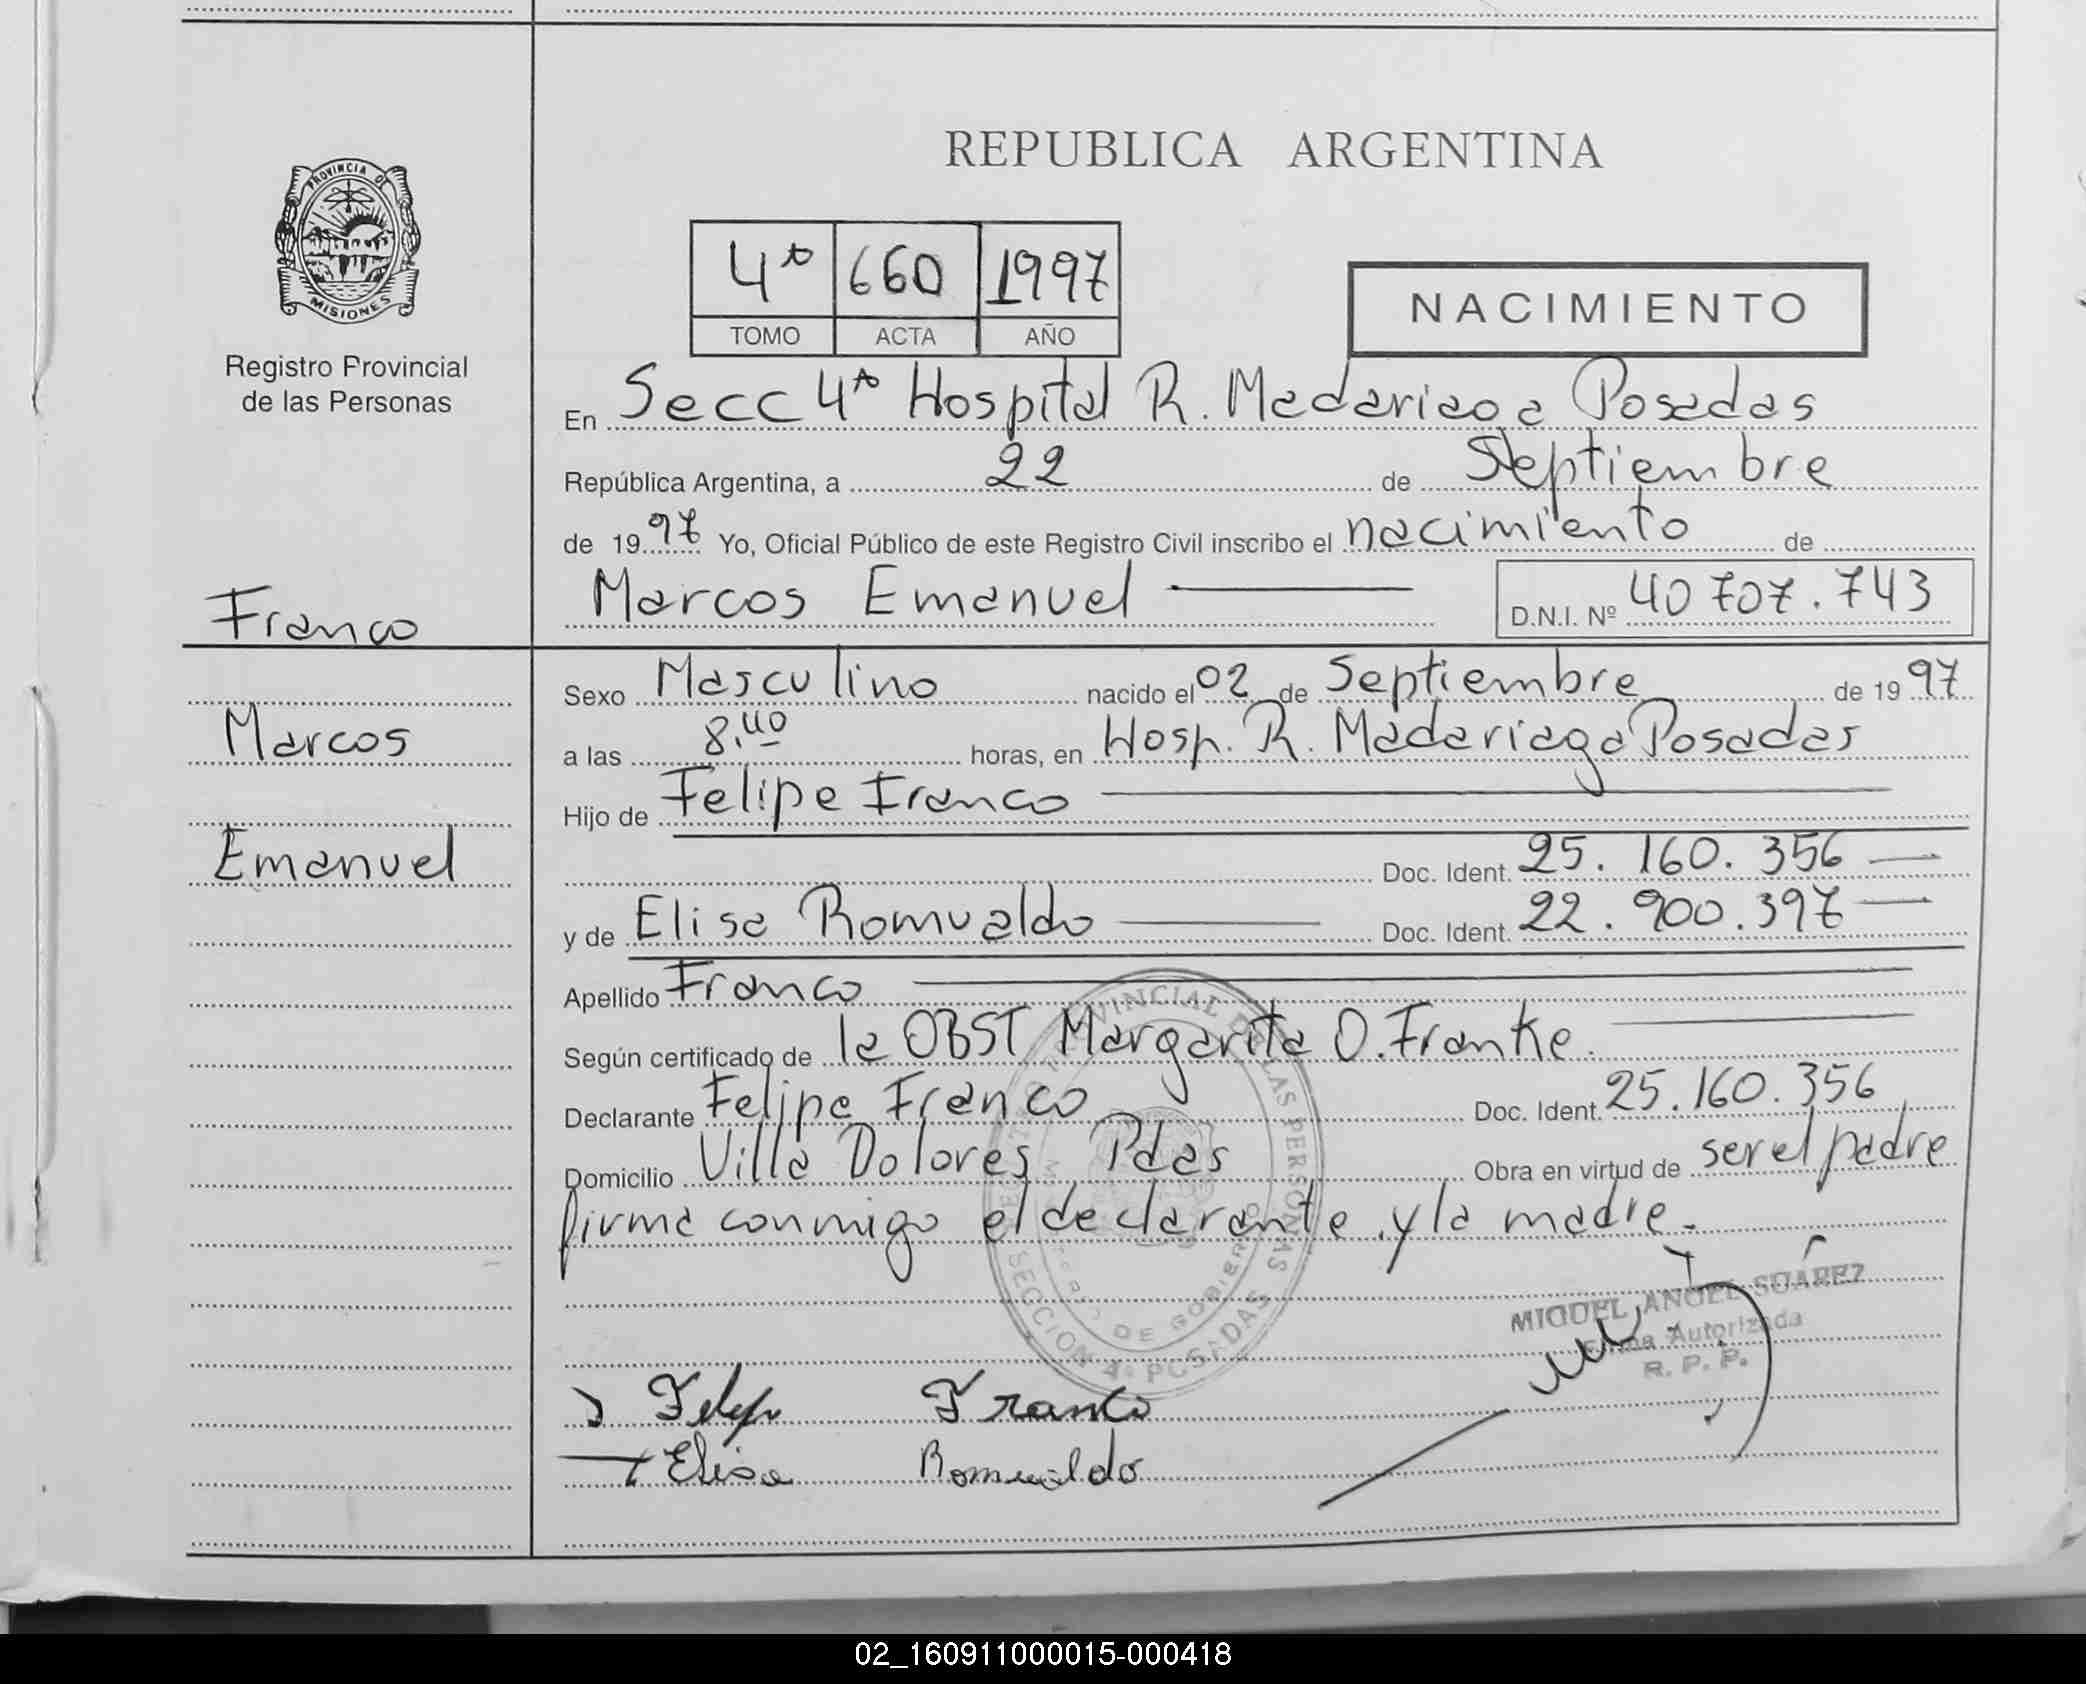 REPUBLICA ARGENTINA
PROVINCIA DE
MISIONES
Registro Provincial
de las Personas
4ta 660 1997
TOMO ACTA AÑO
NACIMIENTO
En Secc 4ta Hospital R. Madariaga Posadas
República Argentina, a 22 de Septiembre
de 1997 Yo, Oficial Público de este Registro Civil inscribo el nacimiento de
Marcos Emanuel D.N.I. Nº 40707.743
Franco
Marcos
Emanuel
Sexo Masculino nacido el 02 de Septiembre de 1997
a las 8.40 horas, en Hosp. R. Madariaga Posadas
Hijo de Felipe Franco
Doc. Ident. 25.160.356
y de Elisa Romualdo Doc. Ident. 22.900.397
Apellido Franco
Según certificado de la OBST Margarita O. Franke
Declarante Felipe Franco Doc. Ident. 25.160.356
Domicilio Villa Dolores Pdas Obra en virtud de ser el padre
firma conmigo el declarante y la madre.
PROVINCIAL DE LAS PERSONAS
DE GOBIERNO
SECCION 4º POSADAS
MIGUEL ANGEL SUAREZ
Firma Autorizada
R. P. P.
Felipe Franco
Elisa Romualdo
02_160911000015-000418